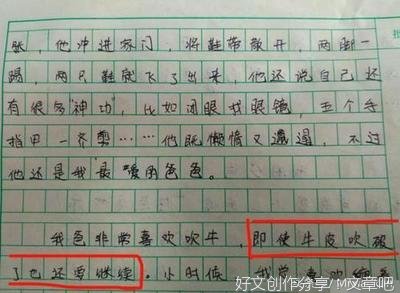 账，他冲进家门，将鞋带散开，两脚一
踢，两只鞋就飞了出来，他还说自己还
有很多"神功"，比如闭眼找眼镜，五个手
指甲一齐剪……他既懒惰又邋遢，不过
他还是我"最"爱的爸爸。
我爸非常喜欢吹牛，即使牛皮吹破
了也还要继续。小时候，我常喜欢
好文创作分享/M文章吧